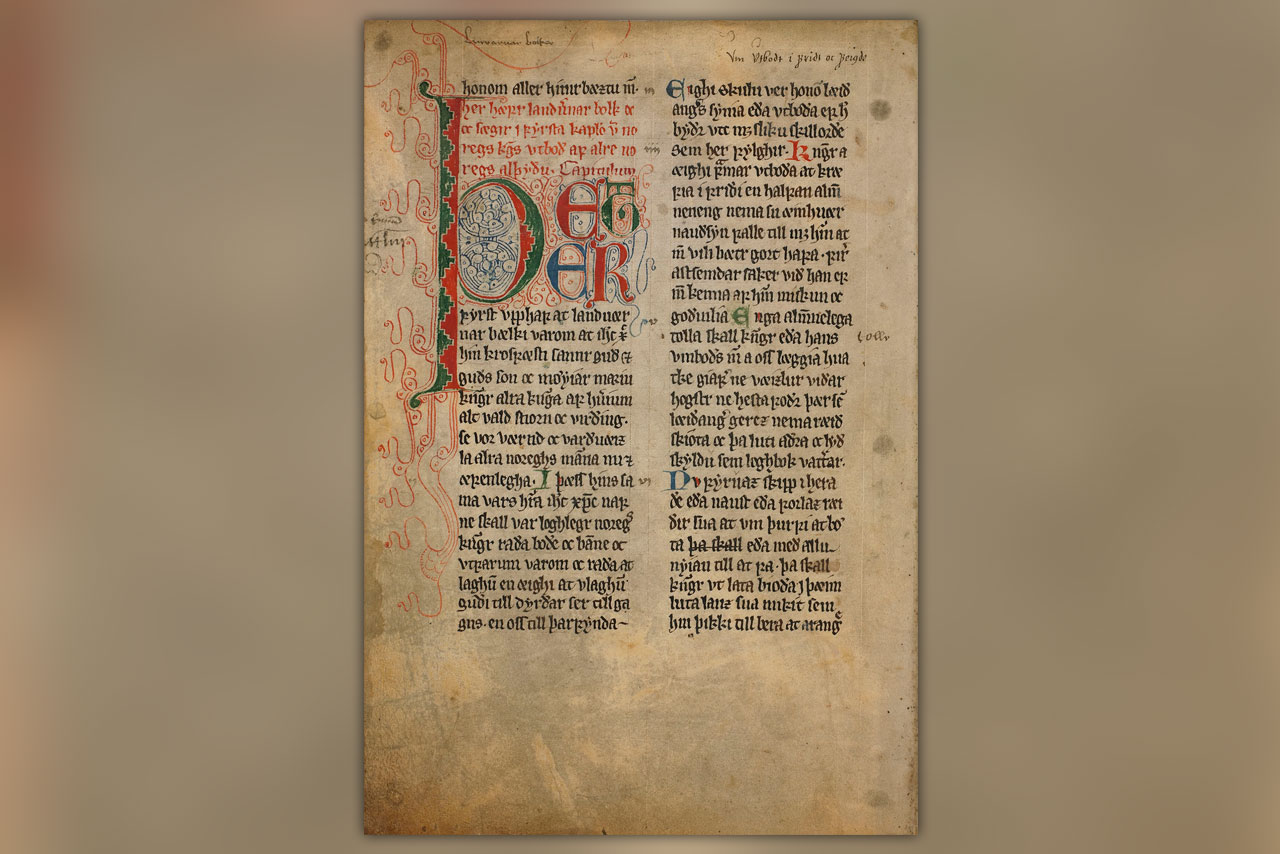 Vm Vtbodt i fridt oc feigde
honom aller hinir bæztu m̄.
her hæfr landu̅nar bolk oc
oc sægir i fyrsta kapło v̄ no
regs kg̅s vtbod af alre no
regs alþydu. Capitulum
ÞETTER
fyrst vpphaf at landuær
nar bælki varom at ih̅c x̄
hin krosfæsti sannr gud ⁊
guds son oc møyiar mariu
kun̅gr alra kun̅ga af hu̅ium
alt vald stiorn oc virding.
se vor vær nd oc varduæiz
la alra noreghs man̅a nu ⁊
æfenlegha. I þæss hins sa
ma vars hr̅a ih̅c xp̅c naf
ne skall var loghlegr noregs
kun̅gr rada bode oc ban̅e oc
vtfarum varom oc rada at
laghu̅ en æighi at vlaghu̅
gudi till dyrdar ser till ga
gns. en oss till þarfynda
Eighi skulu ver hono̅ læid
angs synia eda vtboda er h
bydr vt m; sliku skillorde
sem her fylghir. Kun̅gr a
æighi fra̅mar vtboda at kræ
fia i fridi en halfan alm̅
neneng nema su æinhuær
naudsyn falle till m; hin at
m̄ vili bætr gort hafa. firr̅
astsemdar saker vid han er
m̄ kenna af him miskun oc
goduilia Enga alm̅uelega
tolla skall kun̅gr eda hans
vmbods m̄ a oss læggia hua
tke giaf ne væizlur vidar
hogstr ne hesta fodr þær se̅
læidang̅ gerez nema ræid
skiota oc þa luti adra oc lyd
skyldu sem loghbok vattar.
Nv fyrnaz skipp i hera
de eda naust eda forlaz ræi
dir sua at vm þurfi at bo
ta þa skall eda med allu
nyian till at fa. þa skall
kun̅gr vt lata bioda j þæim
luta lanz sua mikit sem
hm þikki till bera at arang̅
tolle